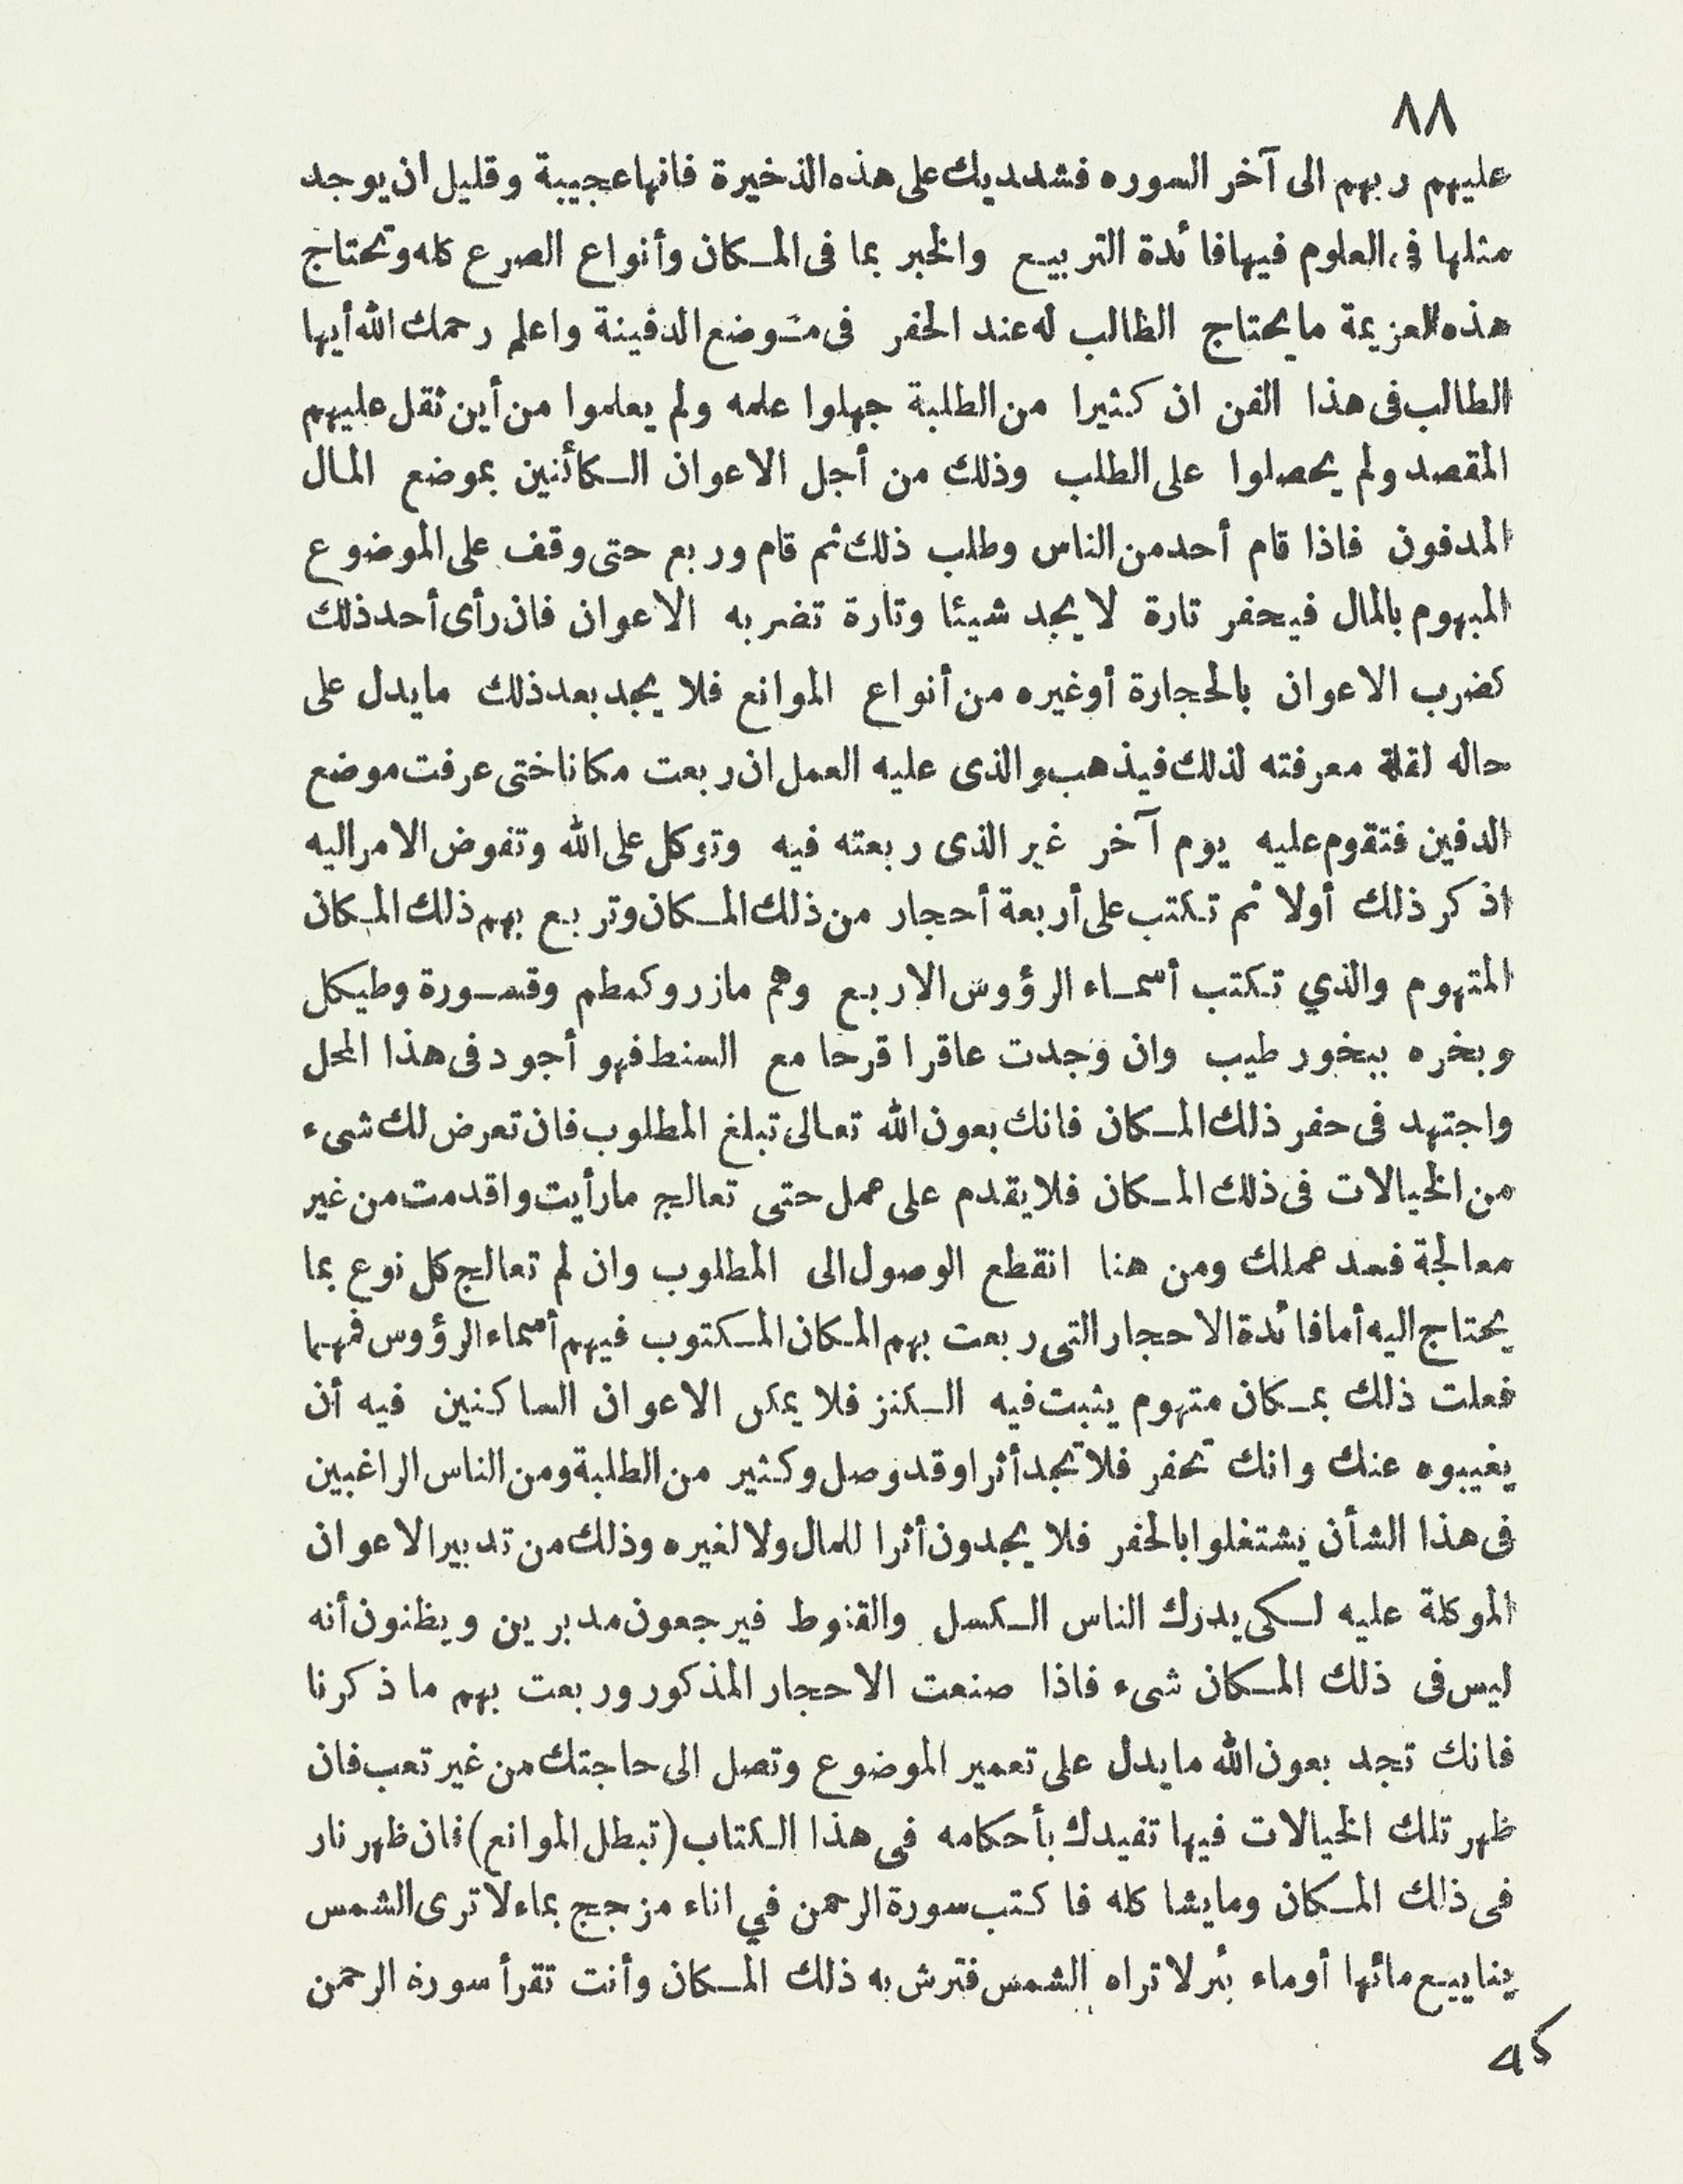 ٨٨
عليهم ربهم الى آخر السوره فشد يديك على هذه الذخيرة فانها عجيبة وقليل ان يوجد
مثلها فى العلوم فيها فائدة التربيع والخبر بما فى المكان وأنواع الصرع كله وتحتاج
هذه العزيمة ما يحتاج الطالب له عند الحفر فى موضع الدفينة واعلم رحمك الله أيها
الطالب فى هذا الفن ان كثيرا من الطلبة جهلوا علمه ولم يعلموا من أين ثقل عليهم
المقصد ولم يحصلوا على الطلب وذلك من أجل الاعوان الكائنين بموضع المال
المدفون فاذا قام أحد من الناس وطلب ذلك ثم قام وربع حتى وقف على الموضوع
المبهوم بالمال فيحفر تارة لا يجد شيئا وتارة تضربه الاعوان فان رأى أحد ذلك
كضرب الاعوان بالحجارة أو غيره من أنواع الموانع فلا يجد بعد ذلك ما يدل على
حاله لقلة معرفته لذلك فيذهب والذى عليه العمل ان ربعت مكانا ختى عرفت موضع
الدفين فتقوم عليه يوم آخر غير الذى ربعته فيه وتوكل على الله وتفوض الامر اليه
اذكر ذلك أولا ثم تكتب على أربعة أحجار من ذلك المكان وتربع بهم ذلك المكان
المتهوم والذي تكتب أسماء الرؤوس الاربع وهم مازر وكمطم وقسورة وطيكل
وبخره ببخور طيب وان وجدت عاقرا قرحا مع السنط فهو أجود فى هذا المحل
واجتهد فى حفر ذلك المكان فانك بعون الله تعالى تبلغ المطلوب فان تعرض لك شىء
من الخيالات فى ذلك المكان فلا يقدم على عمل حتى تعالج ما رأيت واقدمت من غير
معالجة فسد عملك ومن هنا انقطع الوصول الى المطلوب وان لم تعالج كل نوع بما
يحتاج اليه أما فائدة الاحجار التى ربعت بهم المكان المكتوب فيهم أسماء الرؤوس فمهما
فعلت ذلك بمكان متهوم يثبت فيه الكنز فلا يمكن الاعوان الساكنين فيه أن
يغيبوه عنك وانك تحفر فلا تجد أثرا وقد وصل وكثير من الطلبة ومن الناس الراغبين
فى هذا الشأن يشتغلوا بالحفر فلا يجدون أثرا للمال ولا لغيره وذلك من تدبير الاعوان
الموكلة عليه لكى يدرك الناس الكسل والقنوط فيرجعون مدبرين ويظنون أنه
ليس فى ذلك المكان شىء فاذا صنعت الاحجار المذكور وربعت بهم ما ذكرنا
فانك تجد بعون الله ما يدل على تعمير الموضوع وتصل الى حاجتك من غير تعب فان
ظهر تلك الخيالات فيها تفيدك بأحكامه فى هذا الكتاب (تبطل الموانع) فان ظهر نار
فى ذلك المكان وما يشا كله فاكتب سورة الرحمن في اناء مزجج بماء لا ترى الشمس
ينابيع مائها أو ماء بئر لا تراه الشمس فترش به ذلك المكان وأنت تقرأ سورة الرحمن